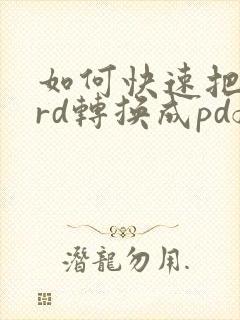 如何快速把
rd轉換成pd
潛龍勿用.